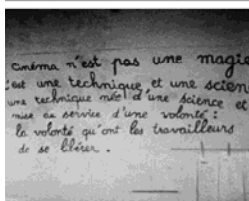 cinéma n'est pas une magie
c'est une technique et une scien
une technique née d'une science et
mise au service d'une volonté :
la volonté qu'ont les travailleurs
de se libérer .